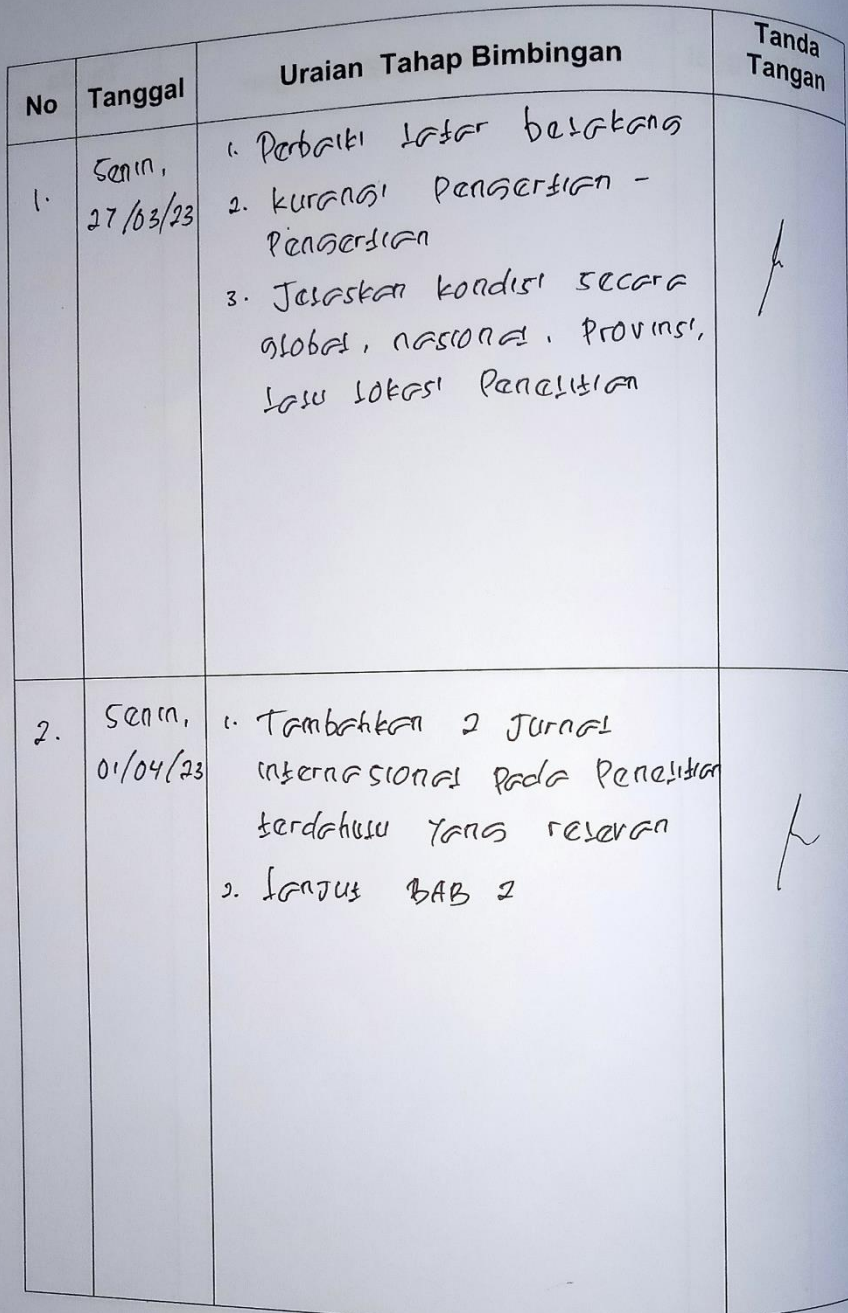 No Tanggal Uraian Tahap Bimbingan Tanda Tangan
1. Senin, 27/03/23
1. Perbaiki latar belakang
2. kurangi Pengertian -
Pengertian
3. Jelaskan kondisi secara
global, nasional, Provinsi,
lalu lokasi Penelitian
2. Senin, 01/04/23
1. Tambahkan 2 Jurnal
internasional Pada Penelitian
terdahulu Yang relevan
2. lanjut BAB 2